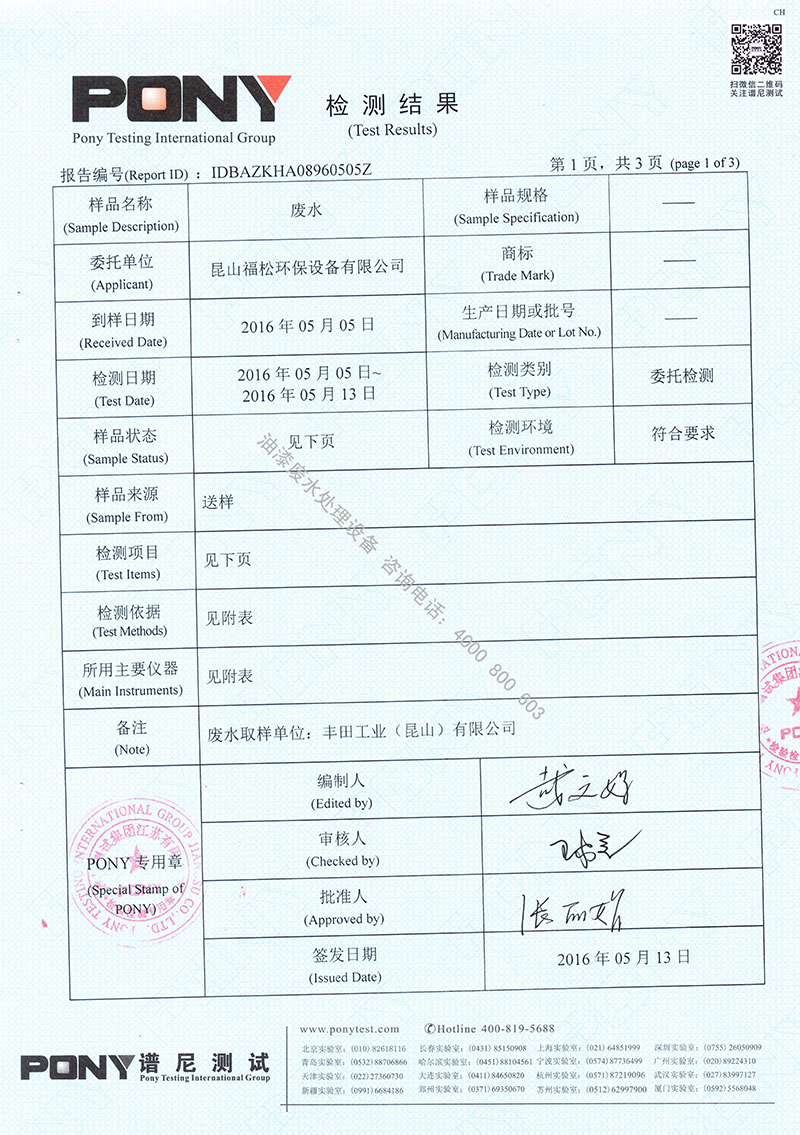 CH
扫微信二维码
关注谱尼测试
PONY
Pony Testing International Group
检测结果
(Test Results)
报告编号(Report ID) ： IDBAZKHA08960505Z
第 1 页，共 3 页 (page 1 of 3)
样品名称
(Sample Description)
废水
样品规格
(Sample Specification)
——
委托单位
(Applicant)
昆山福松环保设备有限公司
商标
(Trade Mark)
——
到样日期
(Received Date)
2016 年 05 月 05 日
生产日期或批号
(Manufacturing Date or Lot No.)
——
检测日期
(Test Date)
2016 年 05 月 05 日~
2016 年 05 月 13 日
检测类别
(Test Type)
委托检测
样品状态
(Sample Status)
见下页
检测环境
(Test Environment)
符合要求
样品来源
(Sample From)
送样
检测项目
(Test Items)
见下页
检测依据
(Test Methods)
见附表
所用主要仪器
(Main Instruments)
见附表
备注
(Note)
废水取样单位：丰田工业（昆山）有限公司
油漆废水处理设备 咨询电话：4000 800 603
PONY 专用章
(Special Stamp of
PONY)
编制人
(Edited by)
审核人
(Checked by)
批准人
(Approved by)
签发日期
(Issued Date)
2016 年 05 月 13 日
PONY 谱尼测试
Pony Testing International Group
www.ponytest.com ✆Hotline 400-819-5688
北京实验室：(010) 82618116 长春实验室：(0431) 85150908 上海实验室：(021) 64851999 深圳实验室：(0755) 26050909
青岛实验室：(0532) 88706866 哈尔滨实验室：(0451) 88104561 宁波实验室：(0574) 87736499 广州实验室：(020) 89224310
天津实验室：(022) 27360730 大连实验室：(0411) 84650820 杭州实验室：(0571) 87219096 武汉实验室：(027) 83997127
新疆实验室：(0991) 6684186 郑州实验室：(0371) 69350670 苏州实验室：(0512) 62997900 厦门实验室：(0592) 5568048